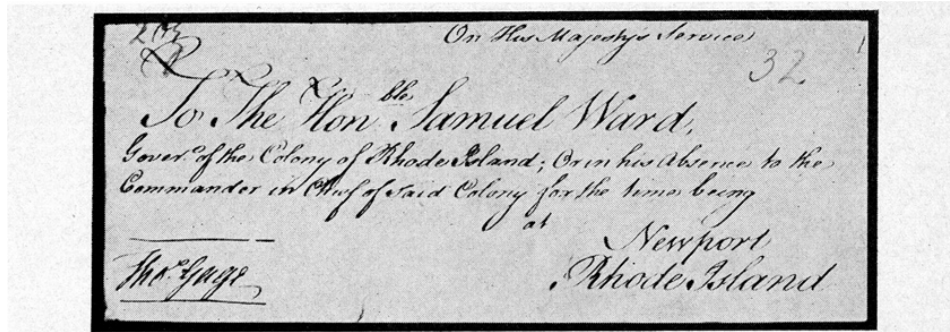 On His Majesty's Service
32
To The Honble Samuel Ward,
Goverr. of the Colony of Rhode Island; Or in his Absence to the
Commander in Chief of said Colony for the time being
at
Newport
Rhode Island
Thos. Gage